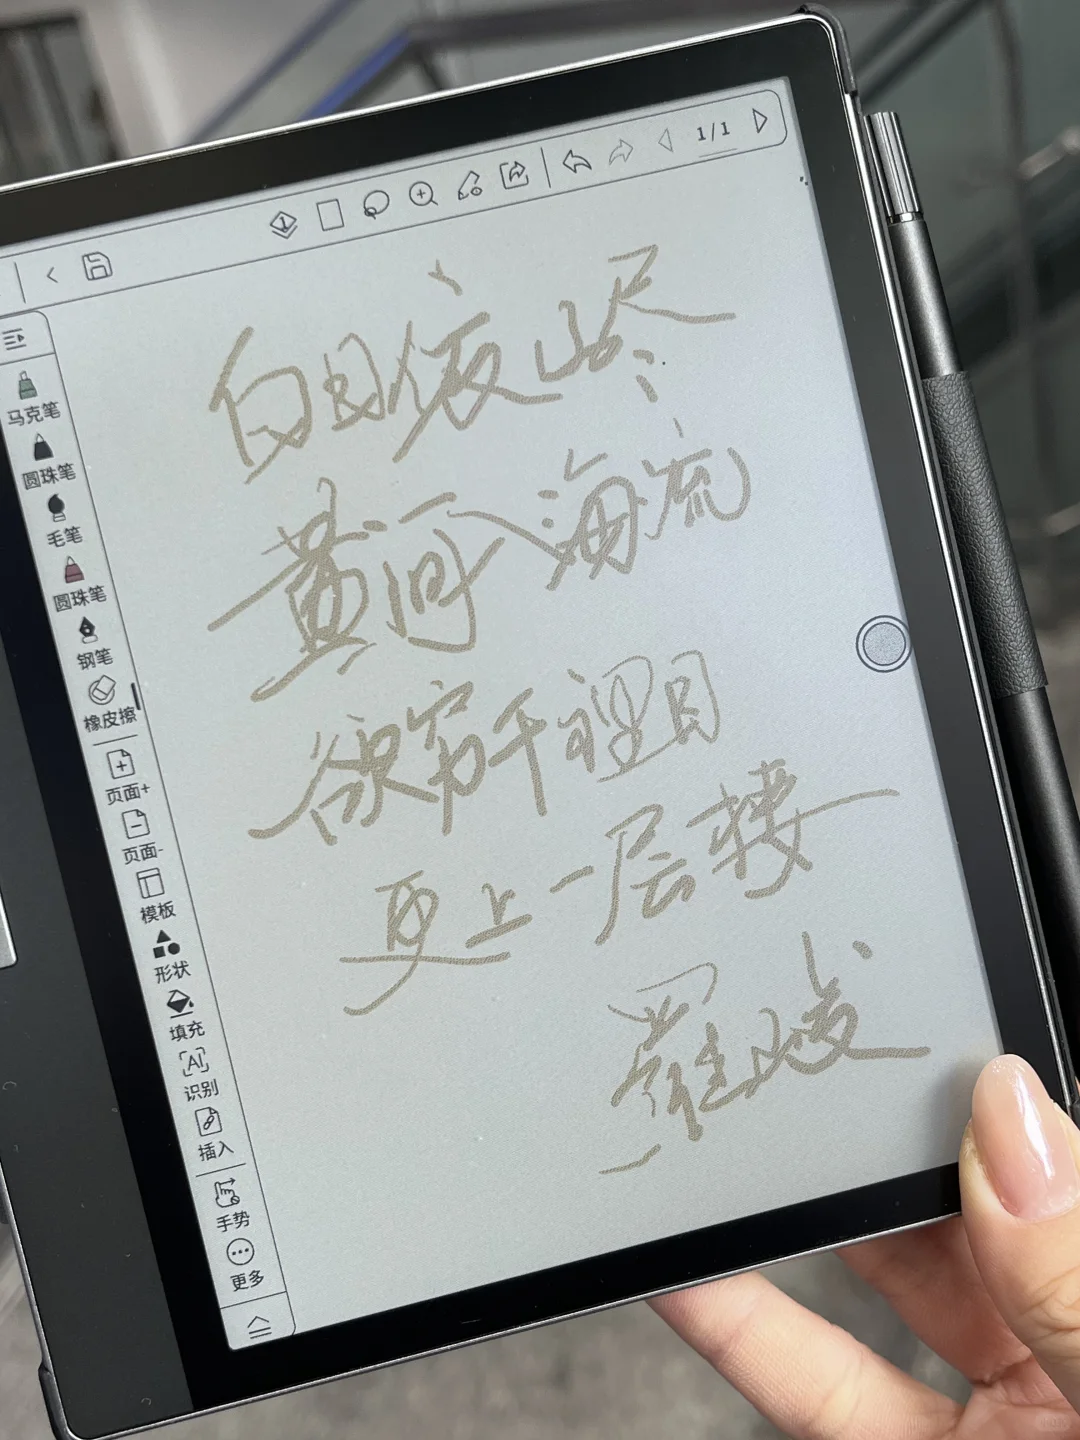 1/1
马克笔
圆珠笔
毛笔
圆珠笔
钢笔
橡皮擦
页面+
页面-
模板
形状
填充
AI
识别
插入
手势
更多
白日依山尽
黄河入海流
欲穷千裡目
更上一层楼
羅